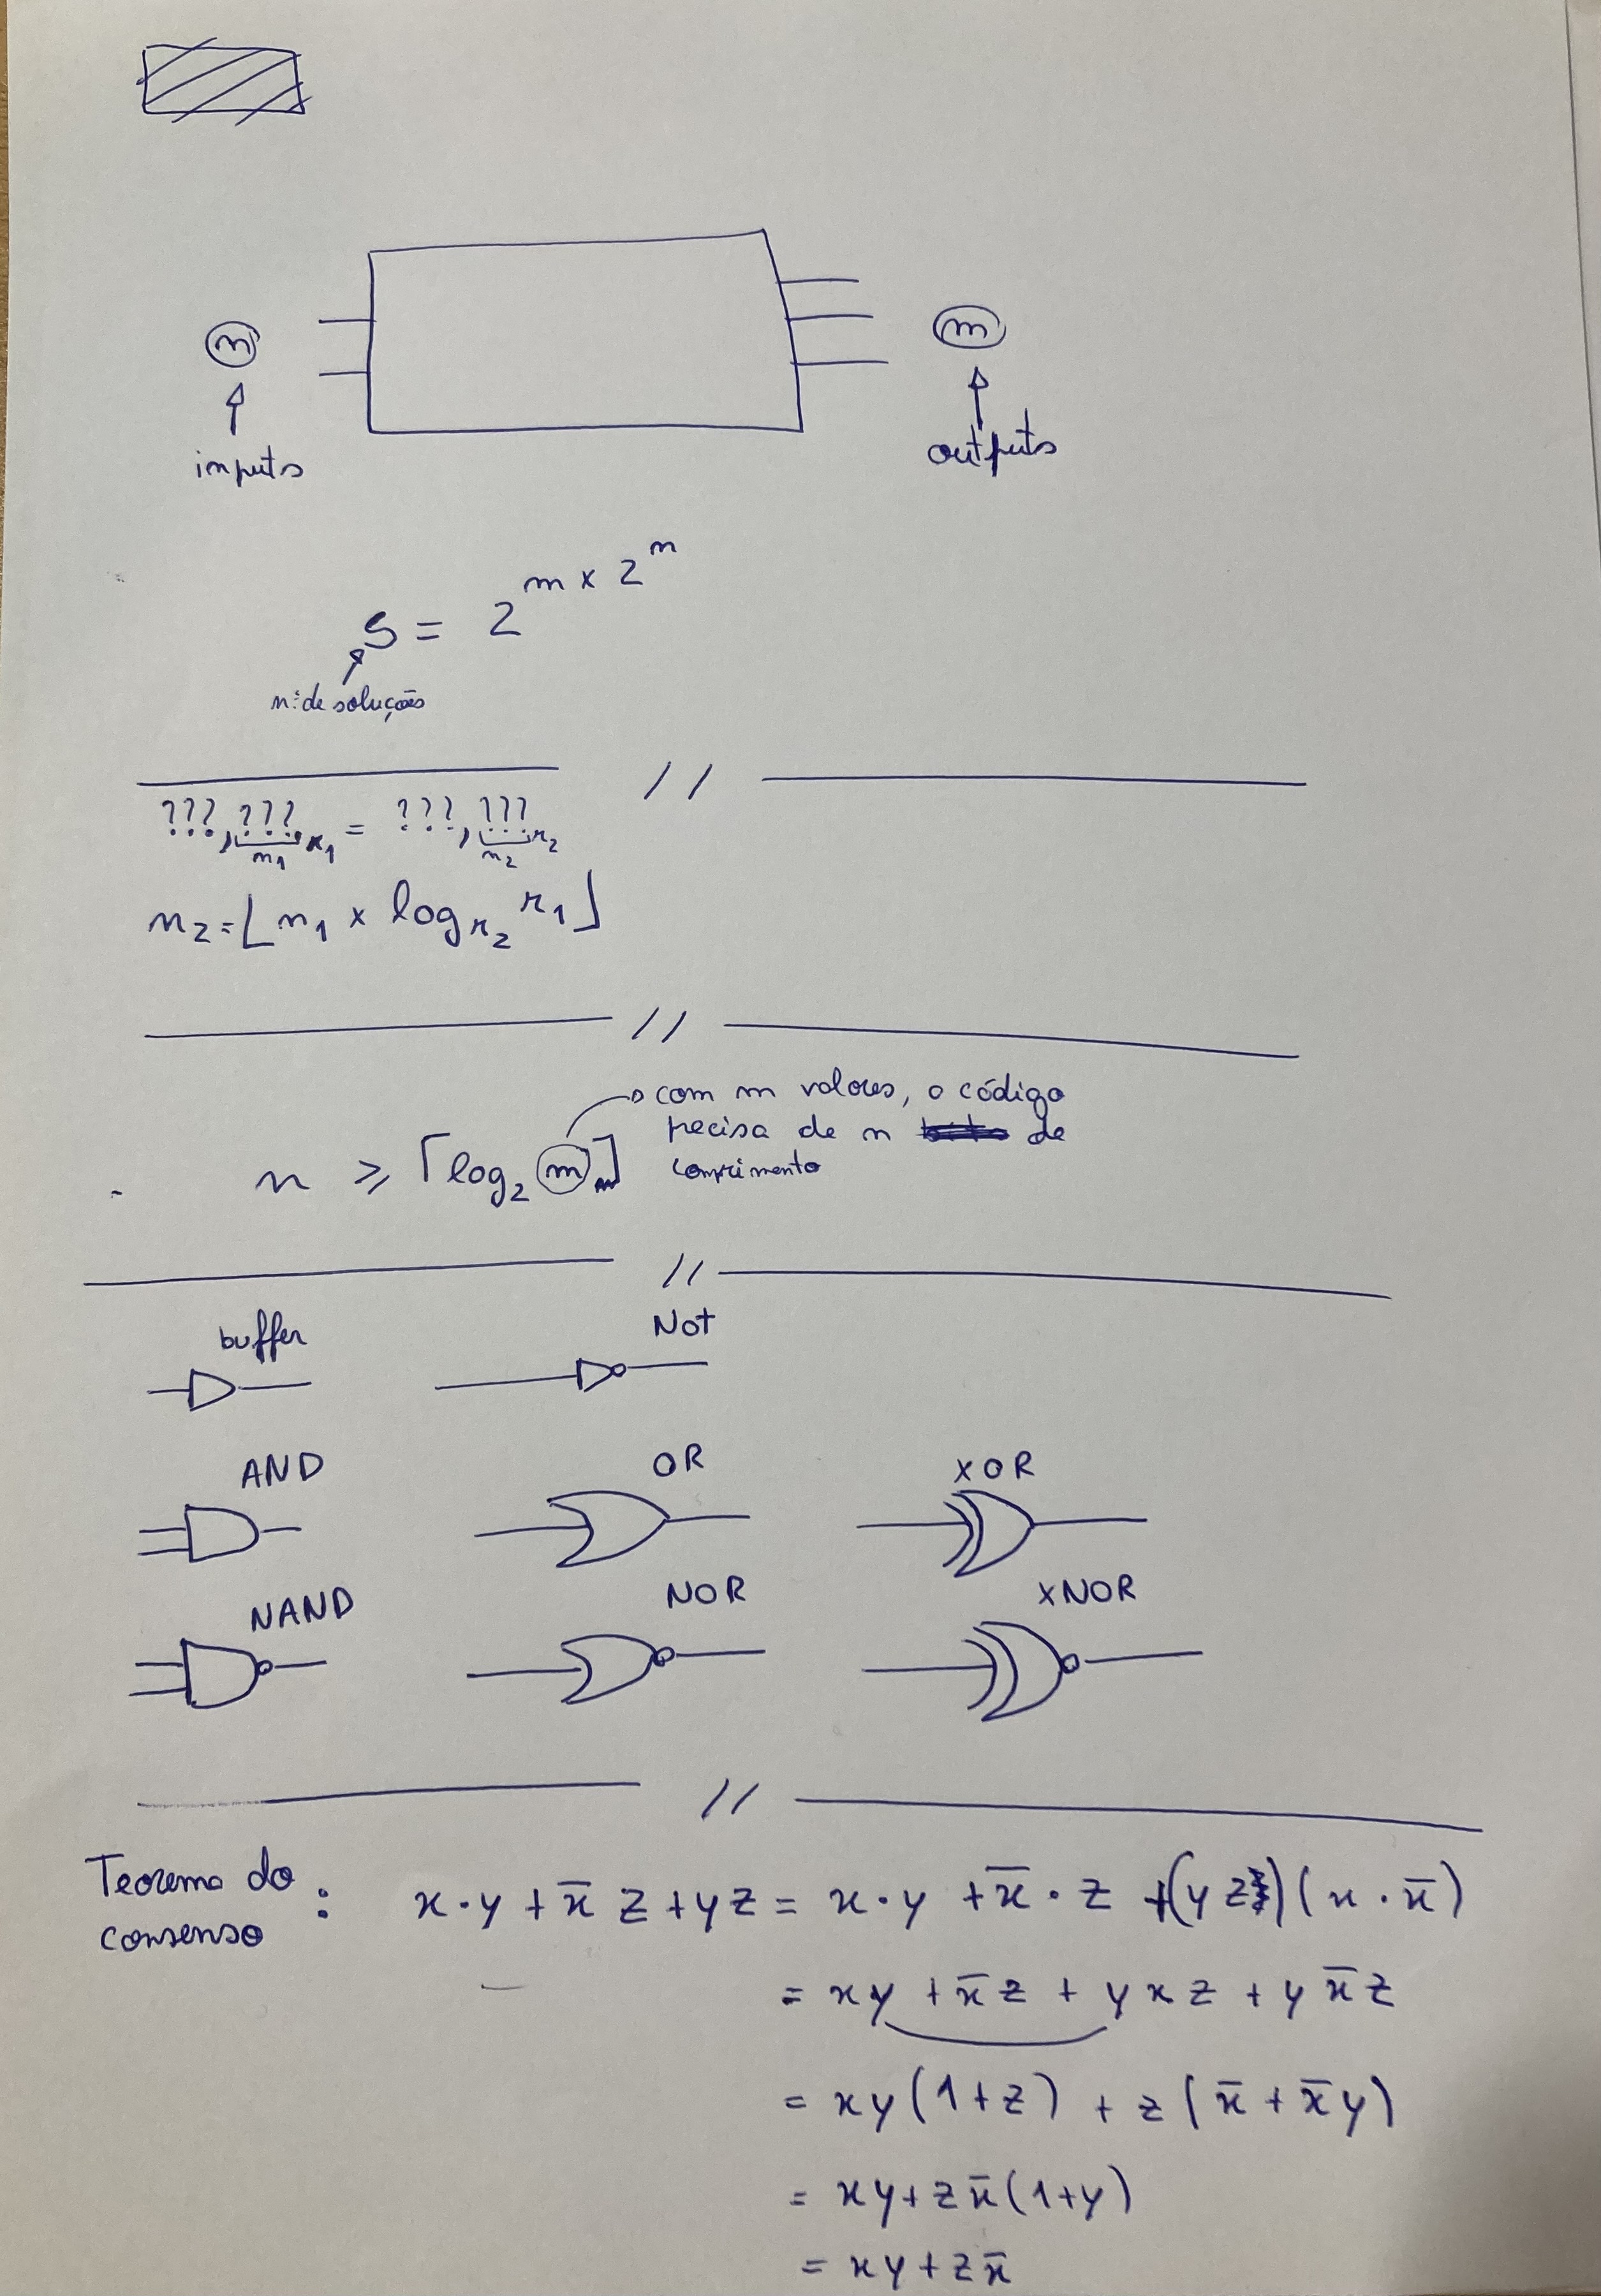 n m
inputs outputs
S = 2^(m × 2^n)
nº de soluções
//
???,???r₁ = ???,???r₂
n₁ n₂
n₂ = ⌊n₁ × log_r₂ r₁⌋
//
com m valores, o código
precisa de n de
comprimento
n ≥ ⌈log₂ m⌉
//
buffer Not
AND OR XOR
NAND NOR XNOR
//
Teorema do
consenso :
x·y + x̄ z + yz = x·y + x̄·z + (yz)(x·x̄)
= xy + x̄z + yxz + yx̄z
= xy(1+z) + z(x̄ + x̄y)
= xy + zx̄(1+y)
= xy + zx̄